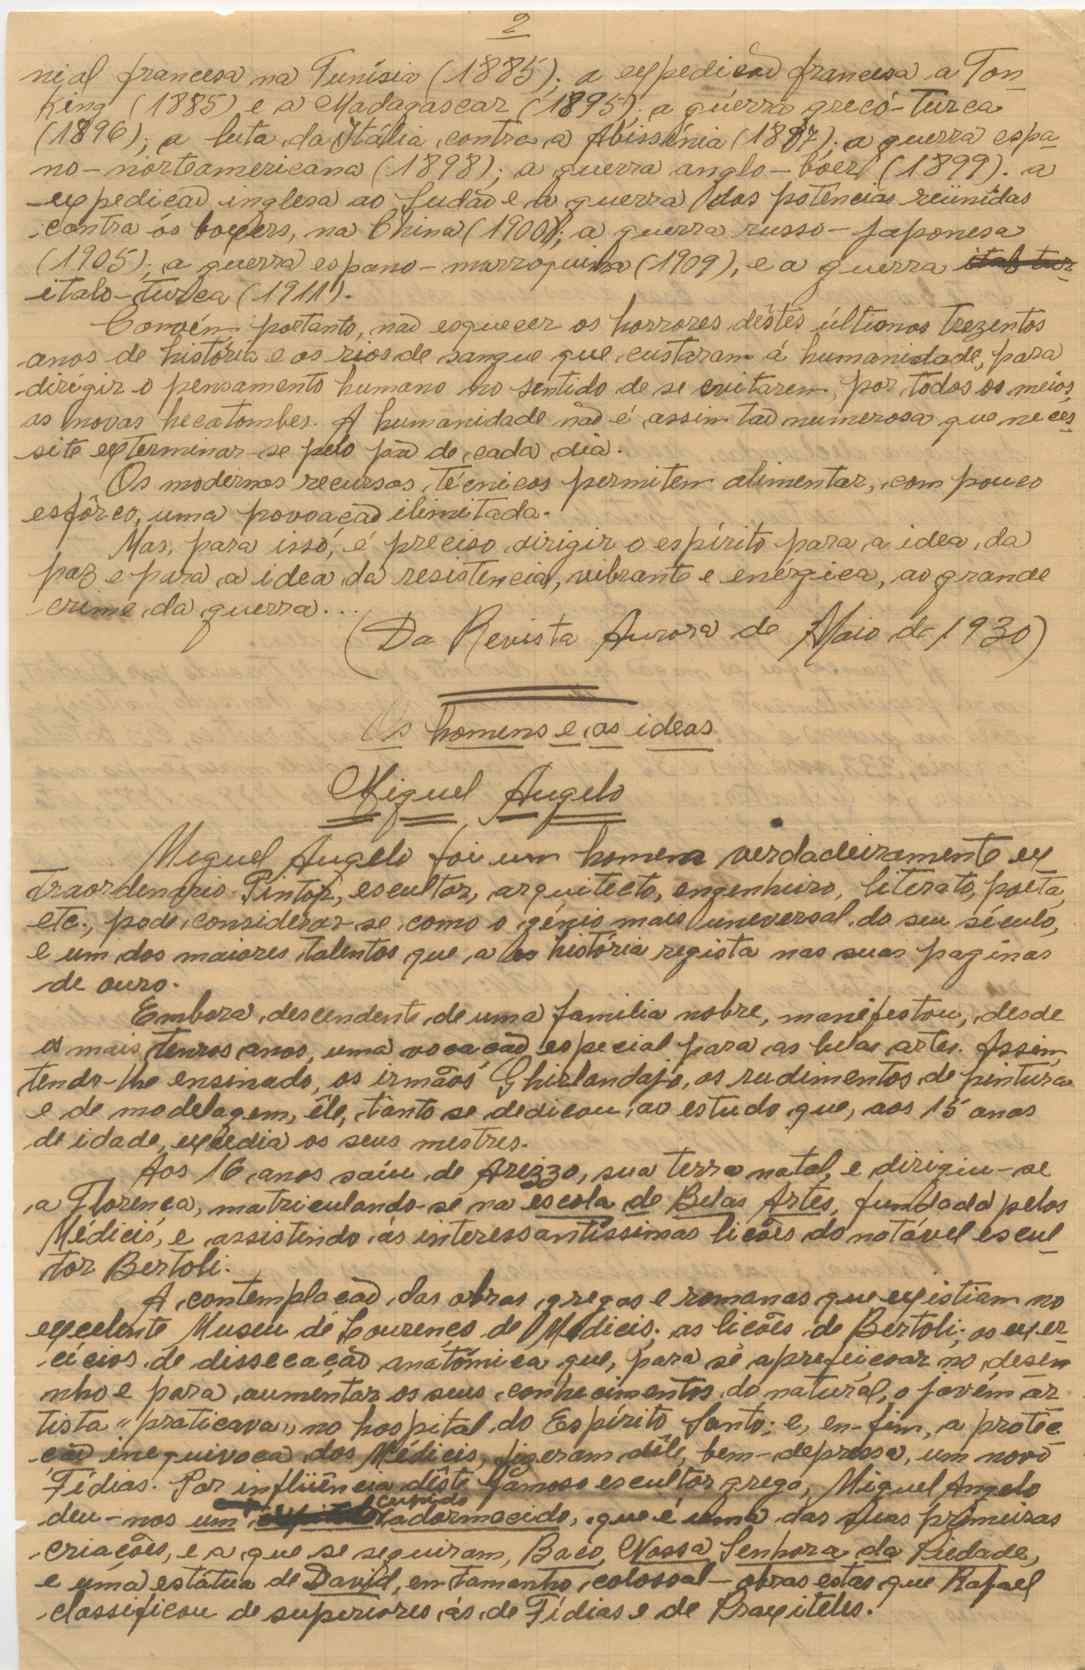 2
nial francesa na Tunísia (1885); a expedição francesa a Ton
King (1885) e a Madagascar (1895); a guerra greco-turca
(1896); a luta da Itália contra a Abissínia (1887); a guerra espa-
no-norteamericana (1898); a guerra anglo-bóer (1899). a
expedição inglesa ao Sudão e a guerra das potências reünidas
contra ós boxers, na China (1900); a guerra russo-japonesa
(1905); a guerra espano-marroquina (1909), e a guerra
italo-turca (1911).
Convém, portanto, não esquecer os horrores dêstes últimos trezentos
anos de história e os rios de sangue que custaram á humanidade, para
dirigir o pensamento humano no sentido de se evitarem, por todos os meios,
as novas hecatombes. A humanidade não é assim tão numerosa que neces-
site exterminar-se pelo pão de cada dia.
Os modernos recursos técnicos permitem alimentar, com pouco
esfôrço, uma povoação ilimitada.
Mas, para issó, é preciso dirigir o espírito para a idea da
paz e para a idea da resistencia, vibrante e enérgica, ao grande
crime da guerra...
(Da Revista Aurora de Maio de 1930)
Os homens e as ideas
Miguel Angelo
Miguel Angelo foi um homem verdadeiramente ex
traordenario. Pintor, escultor, arquitecto, engenheiro, literato, poeta,
etc., pode considerar-se como o génio mais universal do seu século,
e um dos maiores talentos que a história regista nas suas paginas
de ouro.
Embora descendente de uma familia nobre, manifestou, desde
os mais tenros anos, uma vocação especial para as belas artes. Assim,
tendo-lhe ensinado, os irmãos Ghirlandajo, os rudimentos de pintura
e de modelagem, êle, tanto se dedicou ao estudo que, aos 15 anos
de idade, excedia os seus mestres.
Aos 16 anos saíu de Arezzo, sua terra natal, e dirigiu-se
a Florença, matriculando-se na escola de Belas Artes, fundada pelos
Médicis, e assistindo ás interessantíssimas licões do notável escul-
tor Bertoli.
A contemplação das obras gregas e romanas que existiam no
excelente Museu de Lourenço de Médicis; as licões de Bertoli; os exer-
cícios de dissecação anatômica que, para se aperfeiçoar no desen
nho e para aumentar os seus conhecimentos do natural, o jovém ar
tista "praticava" no hospital do Espírito Santo; e, en-fim, a protec-
cão inequivoca dos Médicis, fizeram dêle, bem-depressa, um novo
Fídias. Por influência dêste famoso escultor grego, Miguel Angelo
deu-nos um cupido adormecido, que é uma das suas primeiras
criações, e a que se seguiram, Baco, Nossa Senhora da Piedade,
e uma estátua de David, em tamanho colossal - obras estas que Rafael
classificou de superiores ás de Fídias e de Praxiteles.